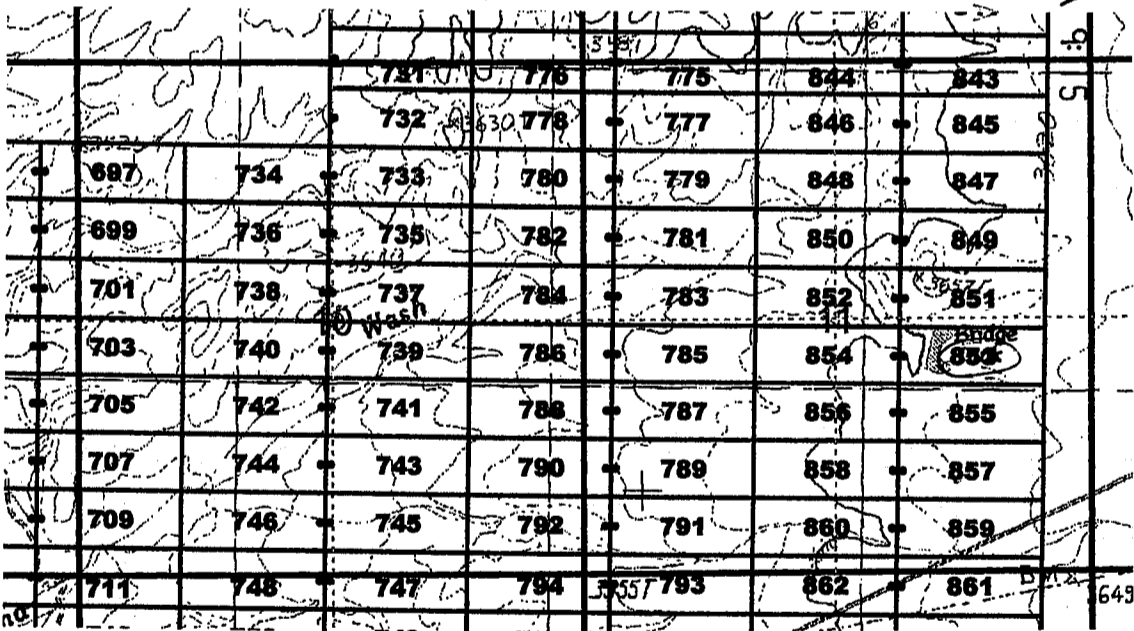 731 776 775 844 843
732 3630 778 777 846 845
697 734 733 780 779 848 847
699 736 735 782 781 850 849
701 738 737 784 783 852 851
Wash
11
Bridge
703 740 739 786 785 854 853
705 742 741 788 787 856 855
707 744 743 790 789 858 857
709 746 745 792 791 860 859
711 748 747 794 793 862 861
649